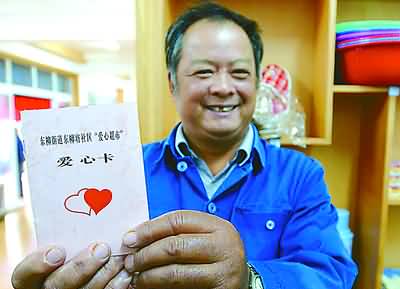 东柳街道东柳坊社区“爱心超市”
爱心卡